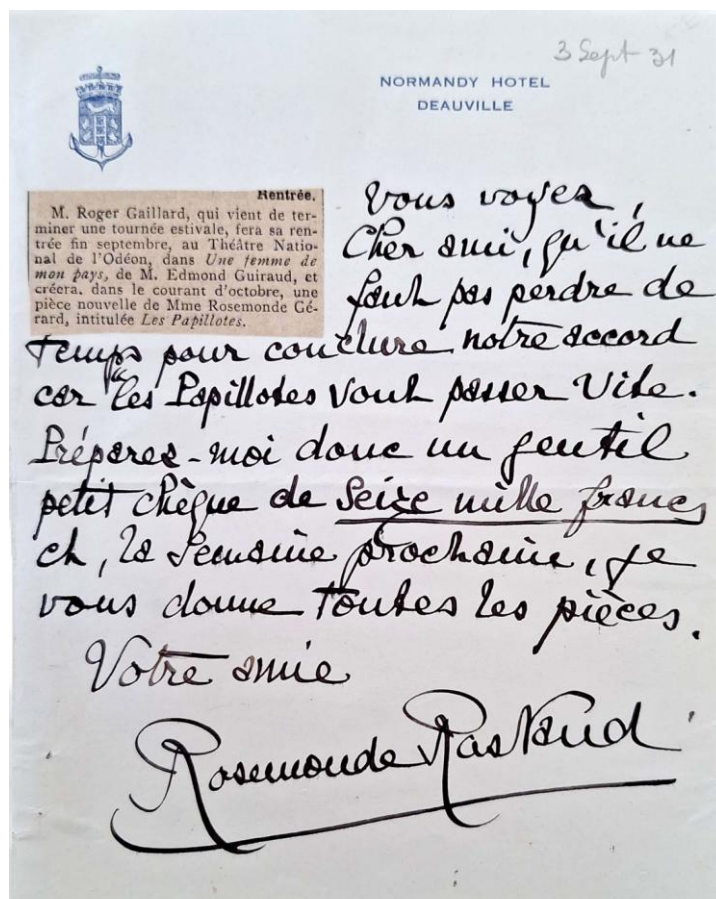 3 Sept 31
NORMANDY HOTEL
DEAUVILLE
Rentrée.
M. Roger Gaillard, qui vient de ter-
miner une tournée estivale, fera sa ren-
trée fin septembre, au Théâtre Natio-
nal de l'Odéon, dans Une femme de
mon pays, de M. Edmond Guiraud, et
créera, dans le courant d'octobre, une
pièce nouvelle de Mme Rosemonde Gé-
rard, intitulée Les Papillotes.
Vous voyez,
Cher ami, qu'il ne
faut pas perdre de
temps pour conclure notre accord
car "les Papillotes vont passer vite.
Préparez-moi donc un gentil
petit chèque de Seize mille francs
et, la semaine prochaine, je
vous donne toutes les pièces.
Votre amie
Rosemonde Rostand